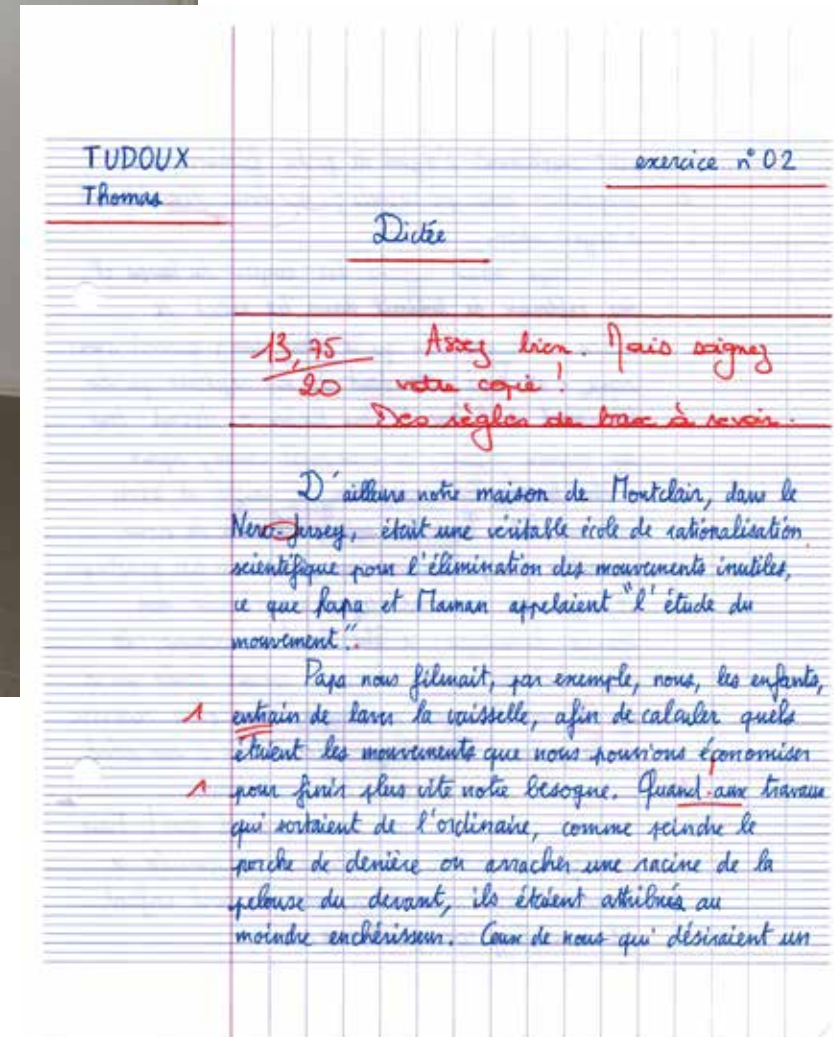 TUDOUX
Thomas
exercice n° 02
Dictée
13,75
20
Assez bien. Mais soignez
votre copie !
Des règles de base à savoir.
D'ailleurs notre maison de Montclair, dans le
New-Jersey, était une véritable école de rationalisation
scientifique pour l'élimination des mouvements inutiles,
ce que Papa et Maman appelaient "l'étude du
mouvement".
Papa nous filmait, par exemple, nous, les enfants,
1 entrain de laver la vaisselle, afin de calculer quels
étaient les mouvements que nous pouvions économiser
1 pour finir plus vite notre besogne. Quand aux travaux
qui sortaient de l'ordinaire, comme peindre le
porche de derrière ou arracher une racine de la
pelouse du devant, ils étaient attribués au
moindre enchérisseur. Ceux de nous qui désiraient un